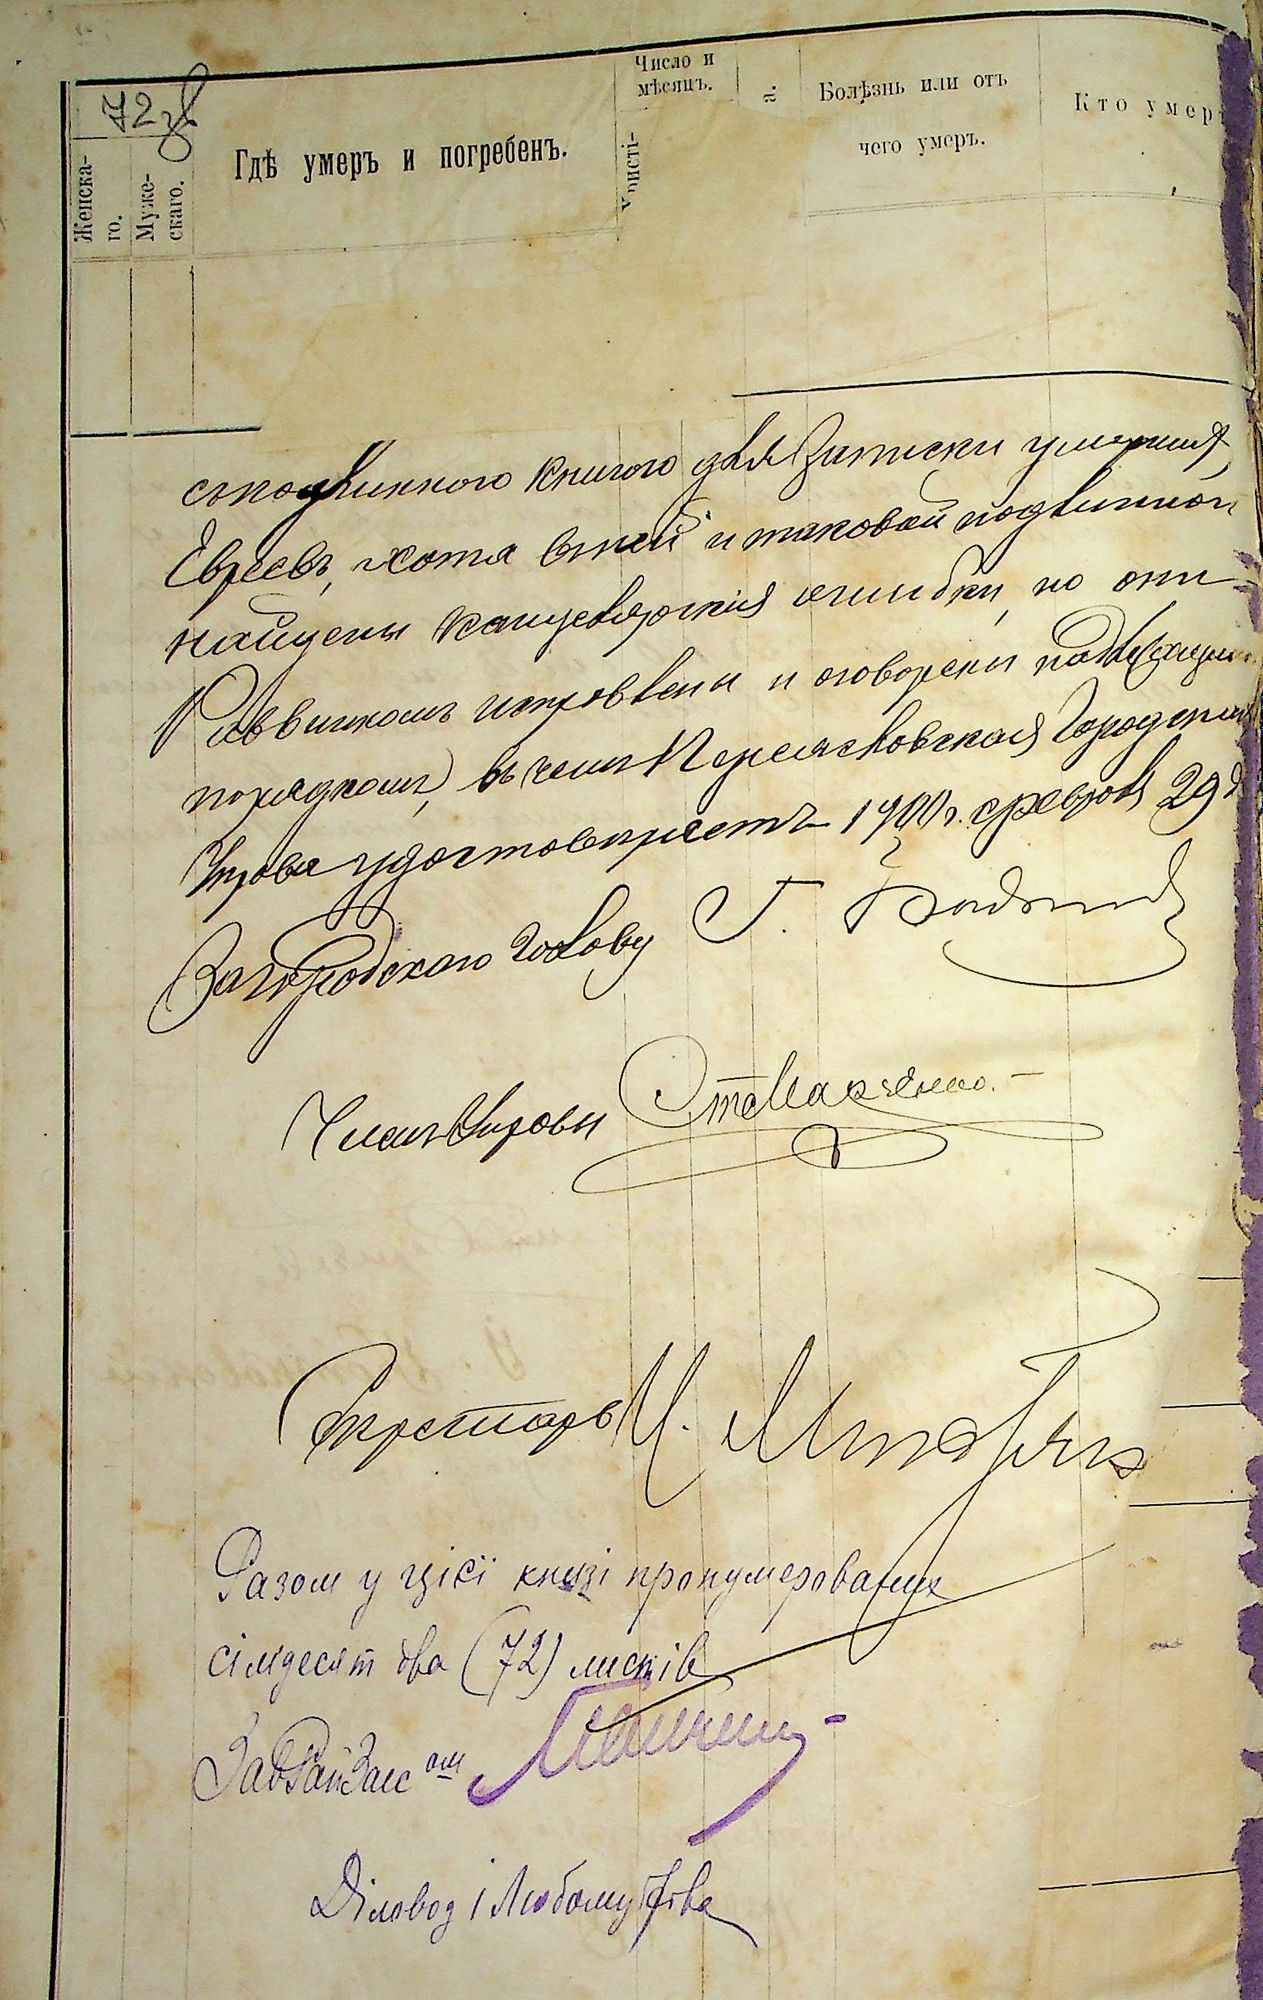 72 зв
Женска-
го.
Муже-
скаго.
Гдѣ умеръ и погребенъ.
Число и
мѣсяцъ.
Христі-
а.
Болѣзнь или отъ
чего умеръ.
Кто умеръ
съ подлинною книгою для записки умершихъ
Евреевъ, хотя въ ней и таковой подлинной
найдены канцелярскія ошибки, но они
Раввиномъ исправлены и оговорены надлежащимъ
порядкомъ, въ чемъ Переяславская Городская
Управа удостовѣряетъ 1900 г. февраля 29 д
За городского голову Г.
Членъ Управы
Секретарь И.
Разом у цієї книзі пронумерованих
сімдесят два (72) листів
ЗавРайЗагс ом
Діловод і Любомудрова